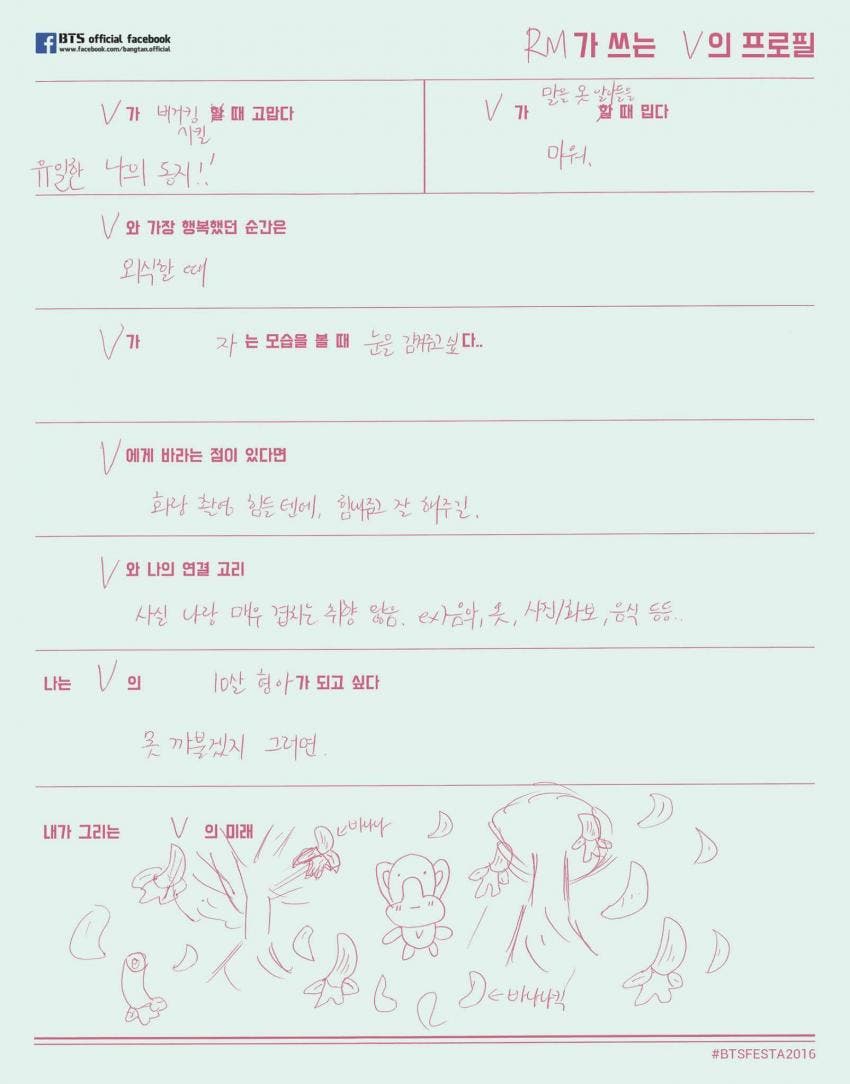 BTS official facebook
www.facebook.com/bangtan.official
RM가 쓰는 V의 프로필
V가 버거킹 시킬 할 때 고맙다
유일한 나의 동지!!
V가 말을 못 알아들을 할 때 밉다
미워.
V와 가장 행복했던 순간은
외식할 때
V가 자는 모습을 볼 때 눈을 감겨주고 싶다..
V에게 바라는 점이 있다면
화랑 촬영 힘들텐데, 힘내주고 잘 해주길.
V와 나의 연결 고리
사실 나랑 매우 겹치는 취향 많음. ex)음악, 옷, 사진/화보, 음식 등등..
나는 V의 10살 형아가 되고 싶다
못 까불겠지 그러면.
내가 그리는 V의 미래
←바나나
V
←바나나킥
#BTSFESTA2016